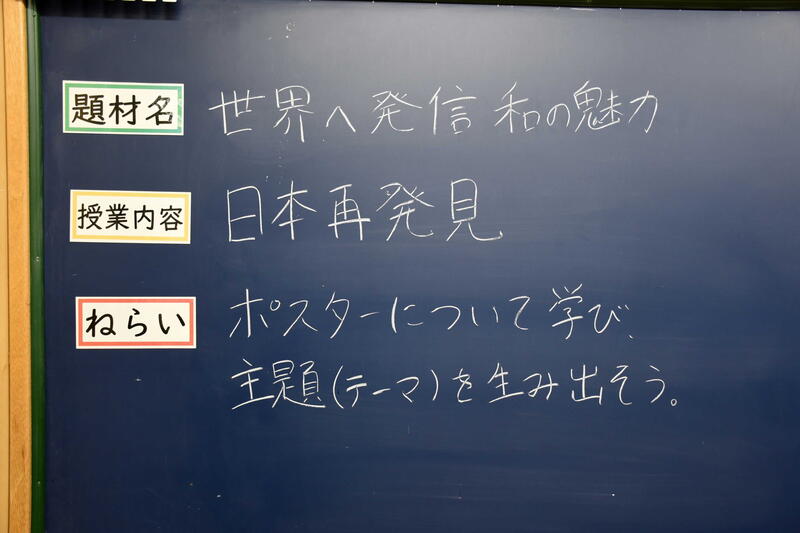 題材名 世界へ発信 和の魅力
授業内容 日本再発見
ねらい ポスターについて学び、
主題(テーマ)を生み出そう。